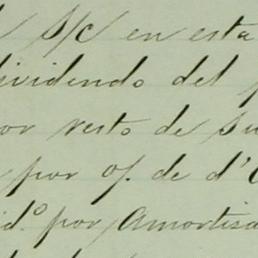 S/C en esta
dividendo del
por resto de su
por of. de d'
id.º por Amortisa